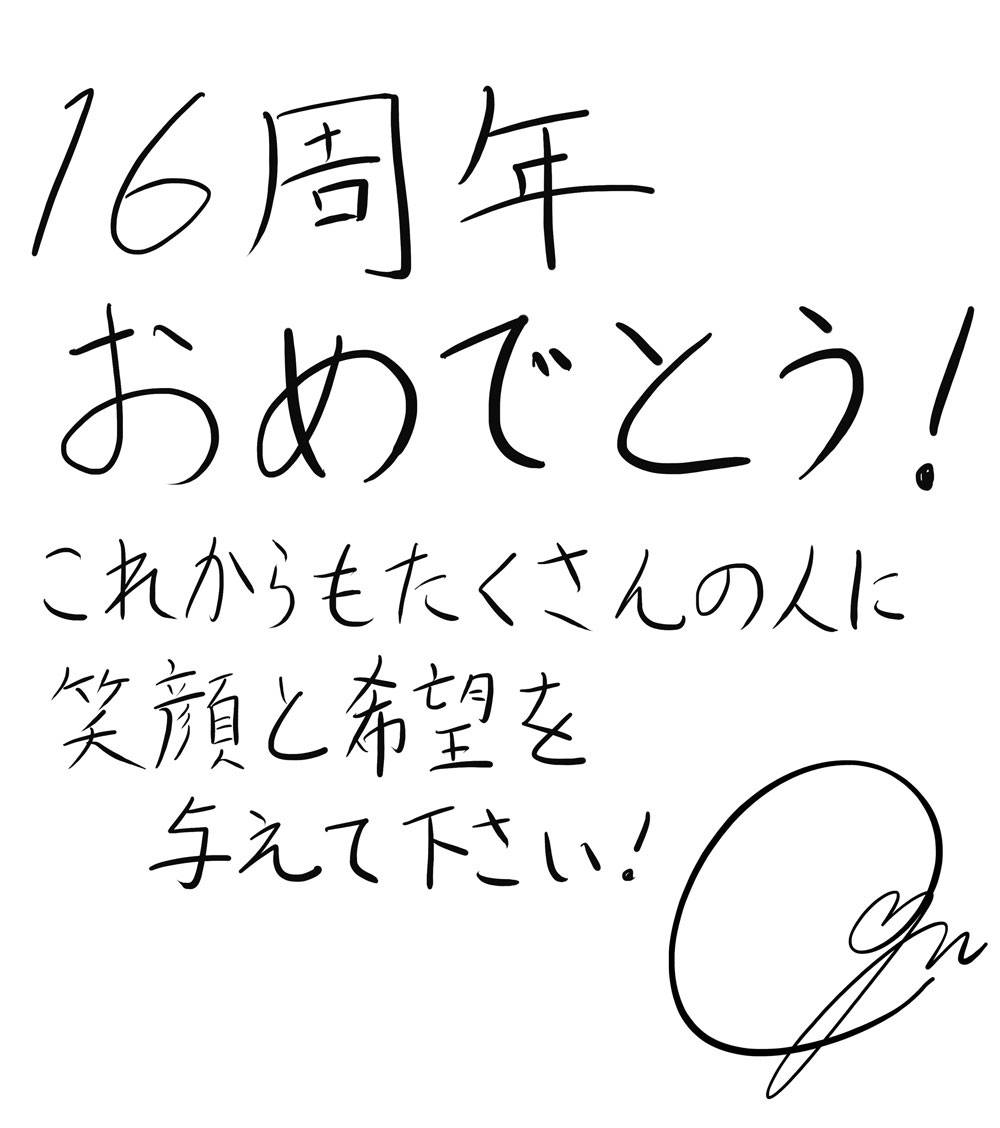 16周年
おめでとう!
これからもたくさんの人に
笑顔と希望を
与えて下さい!